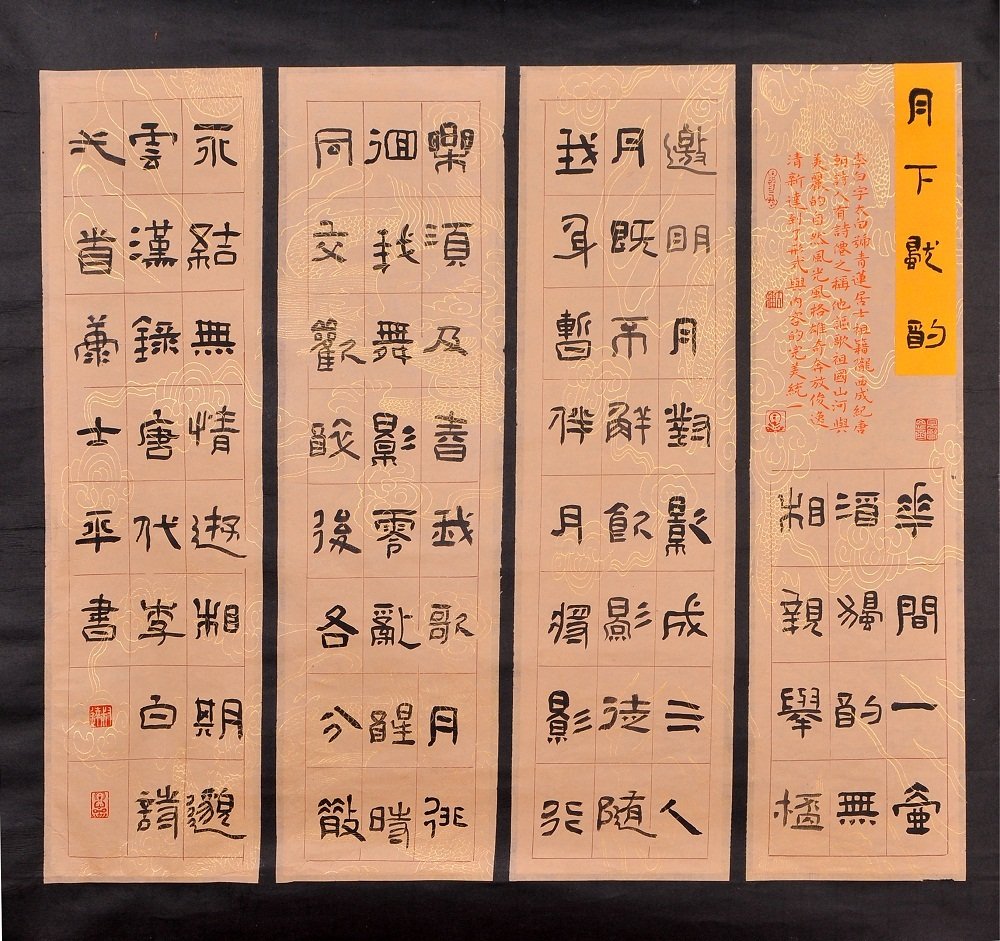 月下獨酌
李白字太白號青蓮居士祖籍隴西成紀唐
朝詩人有詩僊之稱他謳歌祖國山河與
美麗的自然風光風格雄奇奔放俊逸
清新達到了形式與內容的完美統一
華間一壺
酒獨酌無
相親舉桮
邀明月對影成三人
月既不解飲影徒隨
我身暫伴月將影行
樂須及春我歌月徘
徊我舞影零亂醒時
同交歡醉後各分散
永結無情遊相期邈
雲漢錄唐代李白詩
弌首蕭士平書